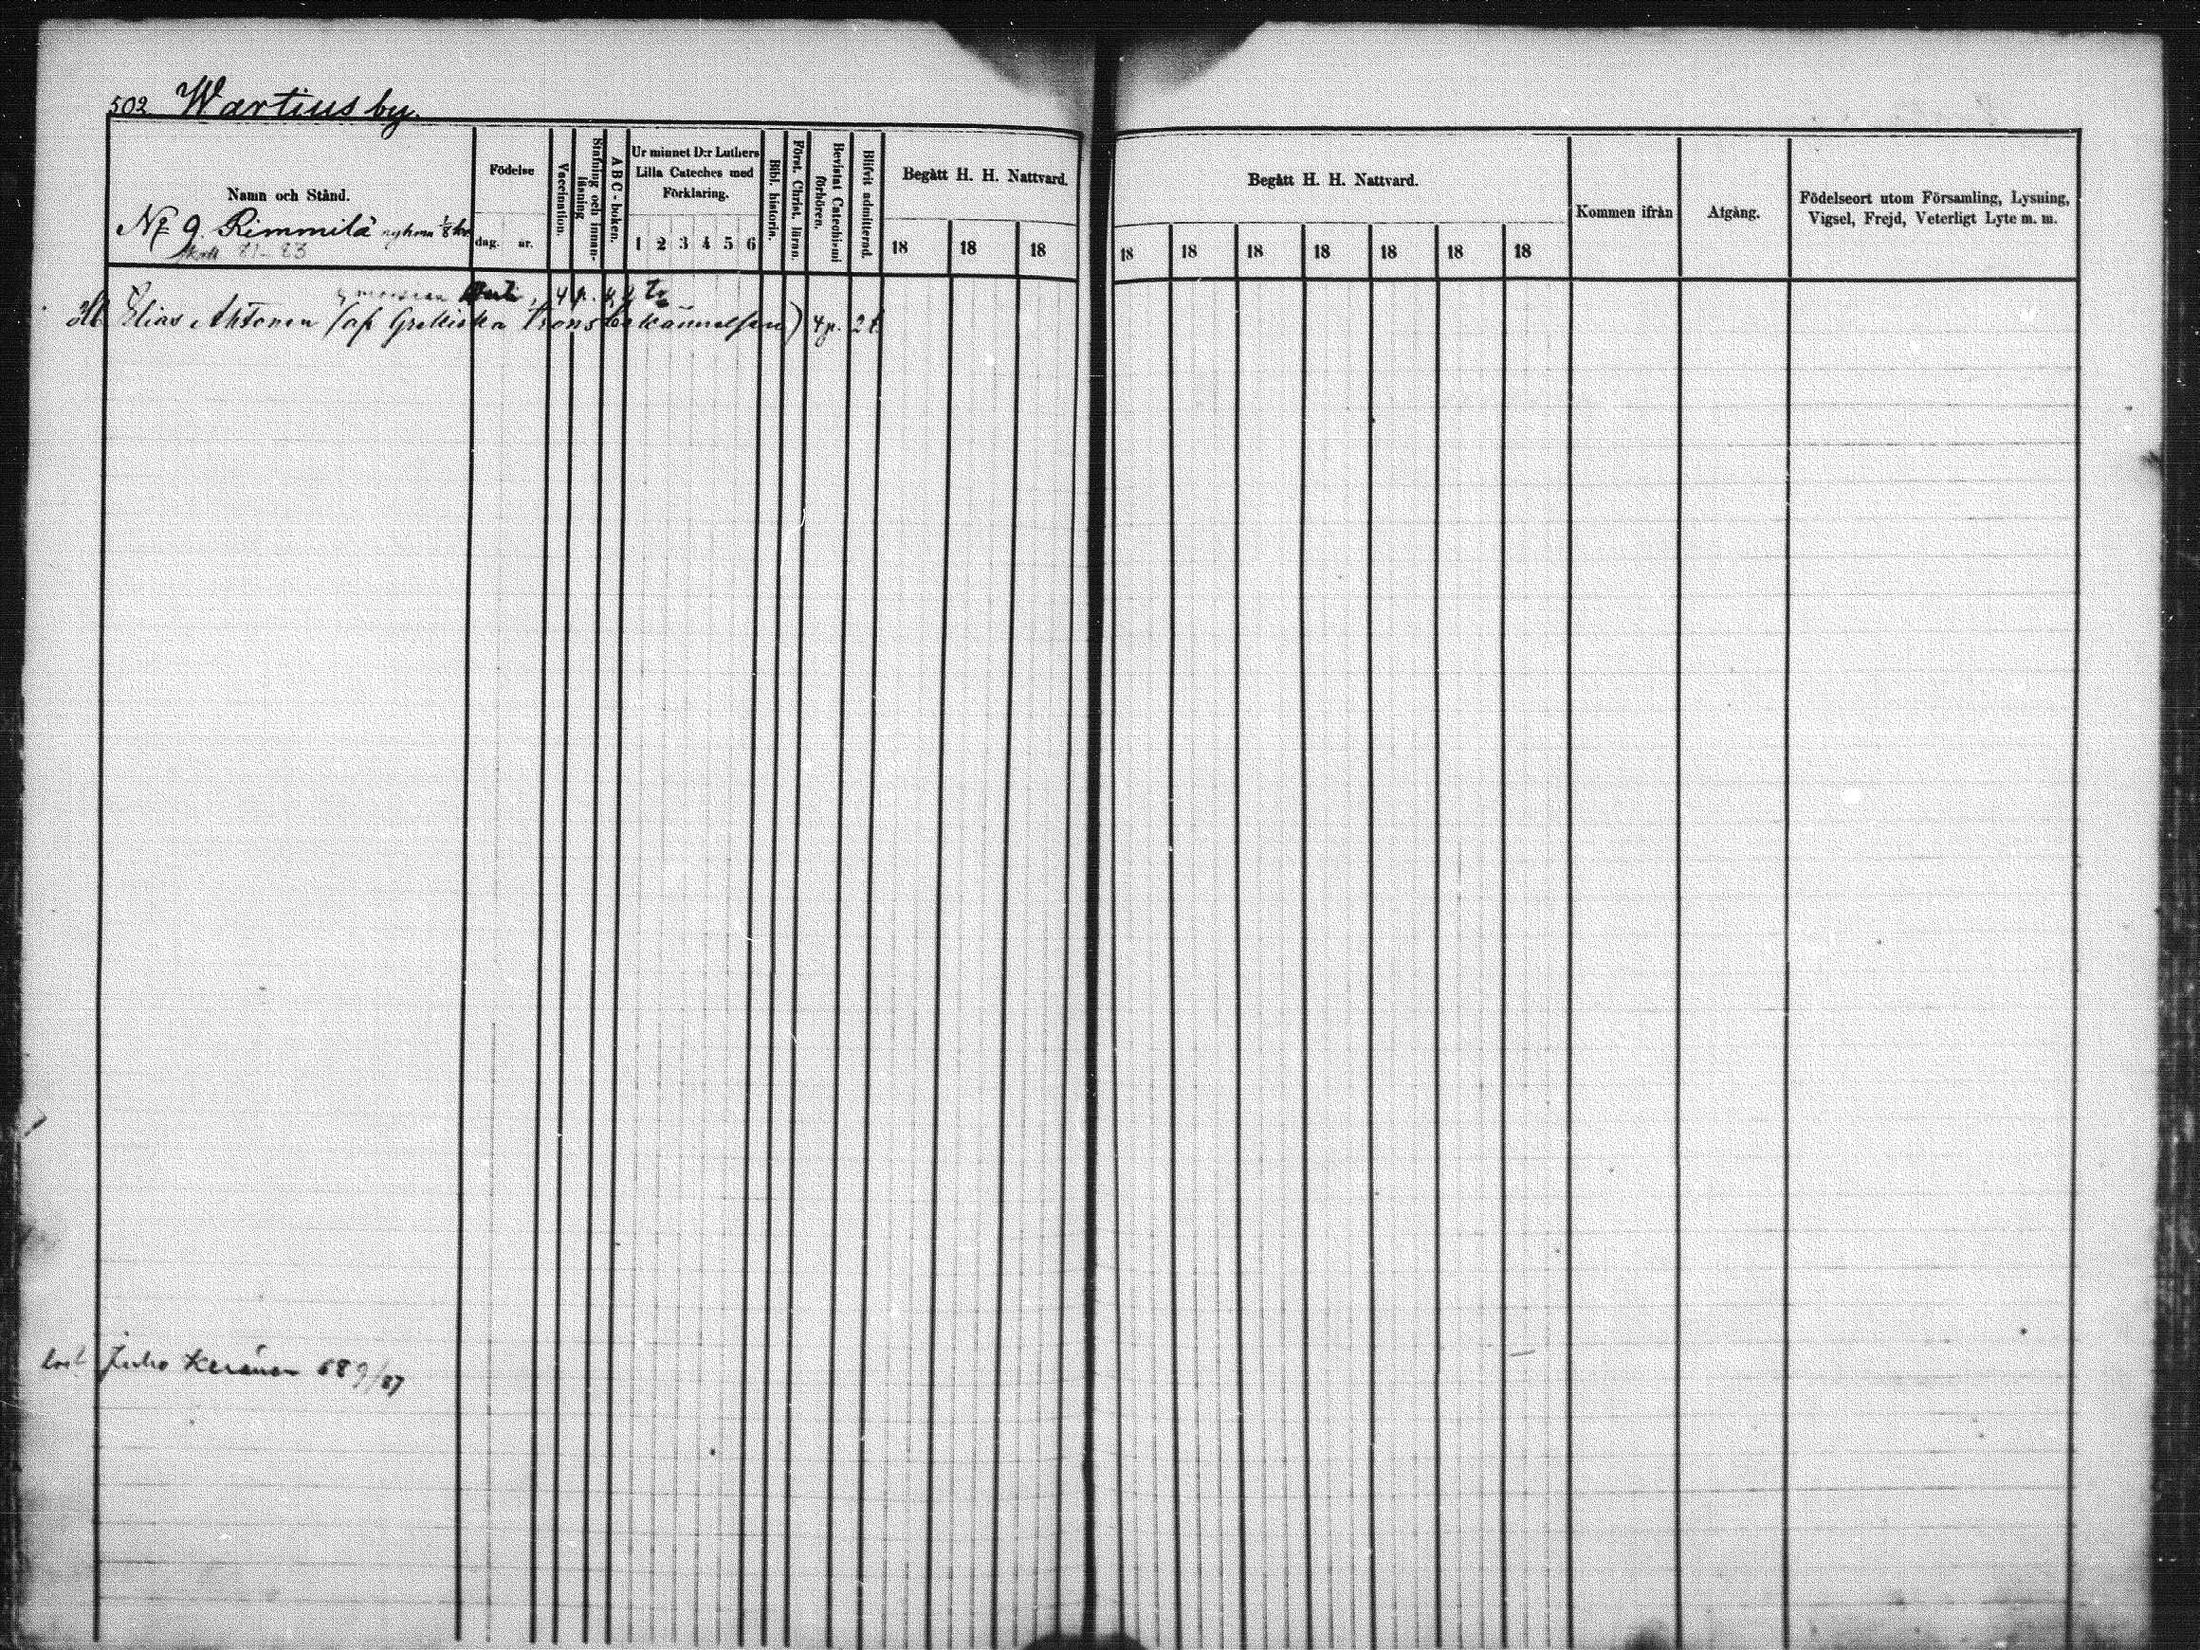 502 Wartius by.
Namn och Stånd.
Nr 9 Rimmilä nyhem 1/8
21-23
Födelse
dag. år.
Vaccination.
Stafning och innan-
läsning
ABC-boken.
Ur minnet D:r Luthers
Lilla Cateches med
Förklaring.
1 2 3 4 5 6
Bibl. historia.
Först. Christ. läran.
Bevistat Catechismi
förhören.
Blifvit admitterad.
Begått H. H. Nattvard.
18 18 18
Begått H. H. Nattvard.
18 18 18 18 18 18 18
Kommen ifrån
Afgång.
Födelseort utom Församling, Lysning,
Vigsel, Frejd, Veterligt Lyte m. m.
4 p.
Elias Ahtonen (af Grekiska trosbekännelsen) 4 p. 2 t
Juho Keränen 68 9/87